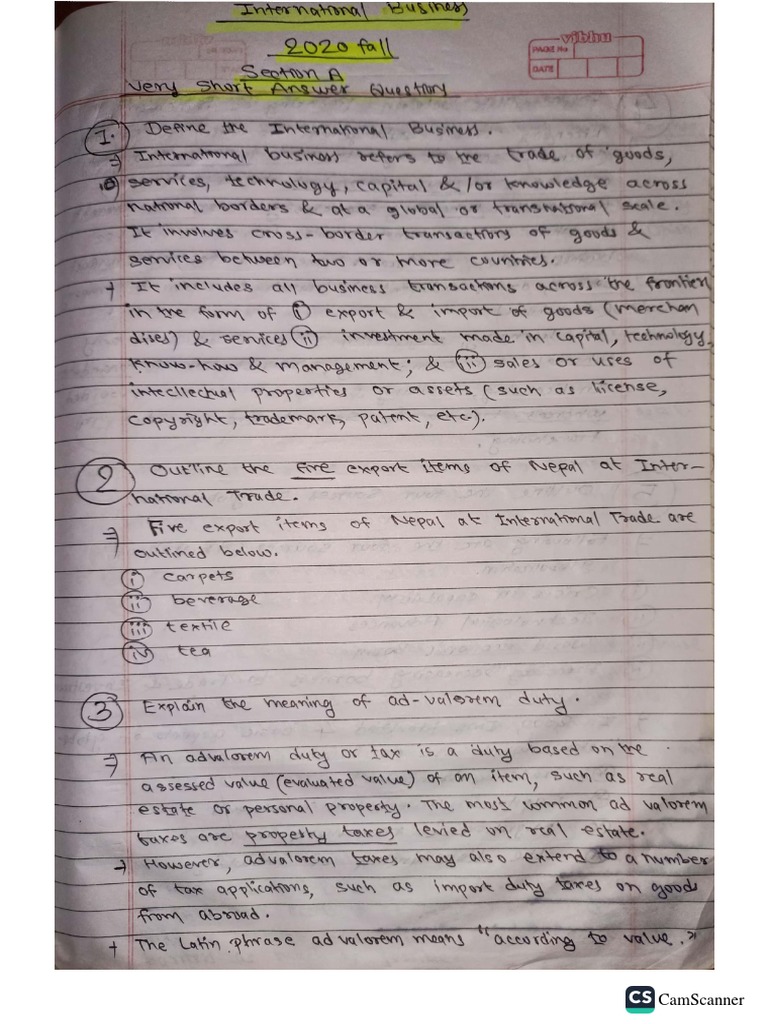 International Business
2020 fall
Section A
Very Short Answer Question
vibhu
PAGE No
DATE
1. Define the International Business.
⇒ International business refers to the trade of goods,
services, technology, capital & /or knowledge across
national borders & at a global or transnational scale.
It involves cross-border transactions of goods &
services between two or more countries.
→ It includes all business transactions across the frontier
in the form of (i) export & import of goods (merchan
dises) & services (ii) investment made in capital, technology,
know-how & management; & (iii) sales or uses of
intecllectual properties or assets (such as license,
copyright, trademark, patent, etc.).
2 Outline the five export items of Nepal at Inter-
national Trade.
⇒ Five export items of Nepal at International Trade are
outlined below.
(i) carpets
(ii) beverage
(iii) textile
(iv) tea
3 Explain the meaning of ad-valorem duty.
⇒ An advalorem duty or tax is a duty based on the
assessed value (evaluated value) of an item, such as real
estate or personal property. The most common ad valorem
taxes are property taxes levied on real estate.
→ However, advalorem taxes may also extend to a number
of tax applications, such as import duty taxes on goods
from abroad.
→ The Latin phrase ad valorem means "according to value."
CS CamScanner